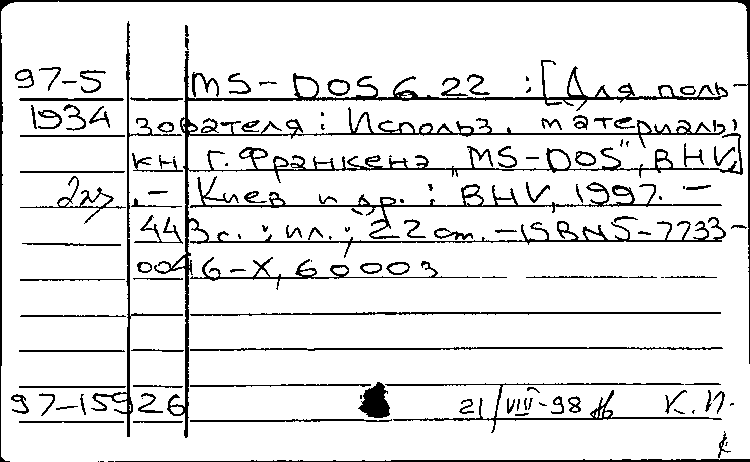 97-5 MS-DOS 6.22 : [Для поль-
1934 зователя : Использ. материалы
кн. Г. Франкена „MS-DOS", BHV]
2 эк. .- Киев и др. : BHV, 1997. -
443 с. : ил. ; 22 cm. - ISBN 5-7733-
0046-X, 6000 э
97-15926 21/VIII-98 К.П.